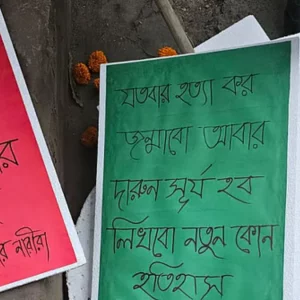 যতবার হত্যা কর
জন্মাবো আবার
দারুন সূর্য হব
লিখবো নতুন কোন
ইতিহাস
র নারীরা